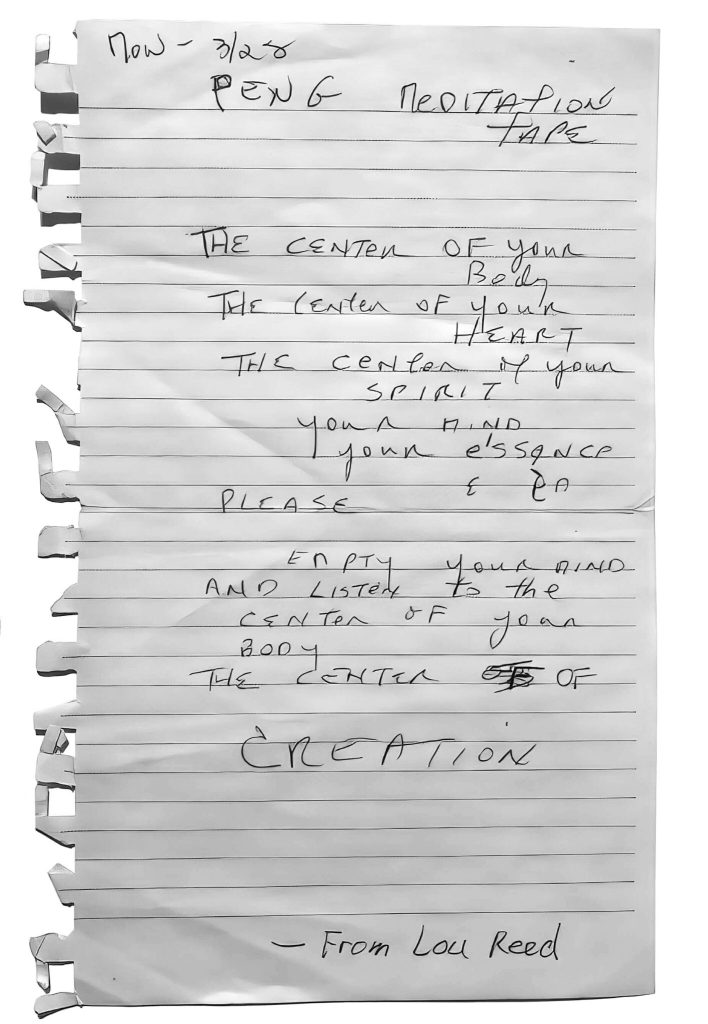 Mon - 3/28
PENG MEDITATION
TAPE
THE CENTER OF your
Body
THE Center OF your
HEART
THE center of your
SPIRIT
your MIND
your essance
PLEASE
EMPTY your MIND
AND LISTEN to the
CENTER OF your
BODY
THE CENTER OF
CREATION
- From Lou Reed